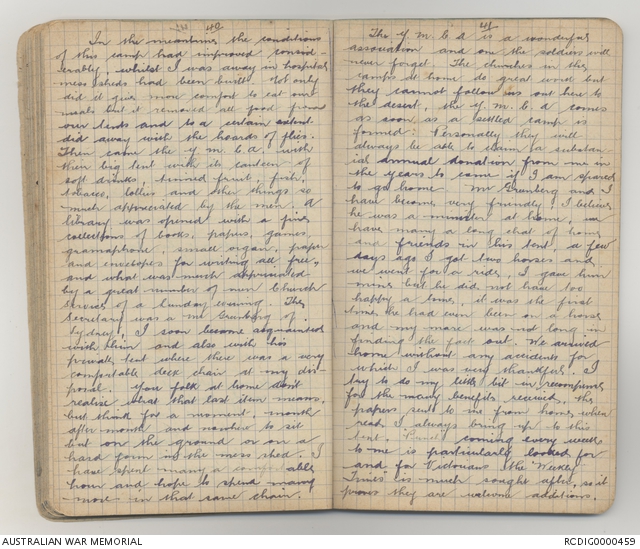 40
In the meantime the conditions
of this camp had improved consid-
erably, whilst I was away in hospital
mess sheds had been built. Not only
did it give more comfort to eat our
meals but it removed all food from
our tents and to a certain extent
did away with the hoards of flies.
Then came the Y.M.C.A. with
their big tent with its canteen of
soft drinks, tinned fruit, fish,
tobacco, lollies and other things so
much appreciated by the men. A
library was opened with a fine
collections of books, papers, games,
gramaphone, small organ, paper
and envelopes for writing all free,
and what was much appreciated
by a great number of men Church
Service of a Sunday evening. The
Secretary was a Mr Grunberg of
Sydney, I soon become acquainted
with him and also with his
private tent where there was a very
comfortable deck chair at my dis-
posal. You folk at home don't
realise what that last item means,
but think for a moment, month
after month and nowhere to sit
but on the ground or on a
hard form in the mess shed. I
have spent many a comfortable
hour and hope to spend many
more in that same chair.
41
The Y.M.C.A is a wonderful
association and one the soldiers will
never forget. The churches in the
camps at home do great work but
they cannot follow us out here to
the desert, the Y.M.C.A comes
as soon as a settled camp is
formed. Personally they will
always be able to claim a substan-
ial annual donation from me in
the years to come if I am spared
to go home. Mr Grunberg and I
have become very friendly, I believe
he was a minister at home, we
have many a long chat of home
and friends in his tent, a few
days ago I got two horses and
we went for a ride, I gave him
mine but he did not have too
happy a time, it was the first
time he had even been on a horse
and my mare was not long in
finding the fact out. We arrived
home without any accidents for
which I was very thankful. I
try to do my little bit in recompense
for the many benefits received, the
papers sent to me from home, when
read I always bring up to this
tent. Punch coming every week
to me is particularly looked for
and for Victorians the Weekly
Times is much sought after, so it
proves they are welcome additions.
AUSTRALIAN WAR MEMORIAL
RCDIG0000459